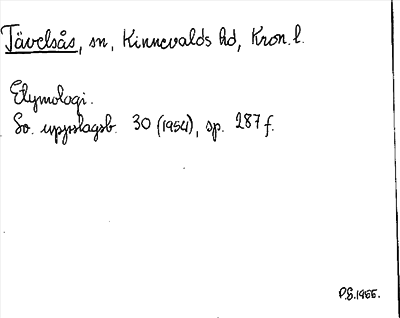 Tävelsås, sn, Kinnevalds hd, Kron. l.
Etymologi.
Sv. uppslagsb. 30 (1954), sp. 287 f.
P.S. 1955.